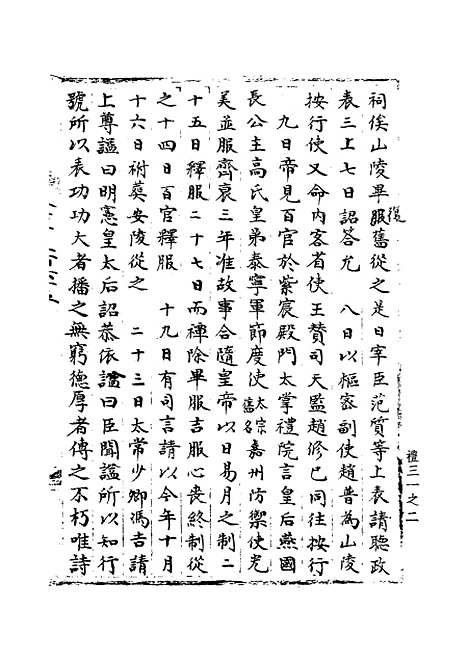 祠俟山陵畢復服舊從之是日宰臣范質等上表請聽政
表三上七日詔答允　八日以樞密副使趙普為山陵
按行使又命內客省使王贊司天監趙修巳同往按行
九日帝見百官於紫宸殿門太掌禮院言皇后燕國
長公主高氏皇弟泰寧軍節度使太宗舊名嘉州防禦使光
美並服齊衰三年准故事合隨皇帝以日易月之制二
十五日釋服二十七日而禫除畢服吉服心喪終制從
之十四日百官釋服　十九日有司言請以今年十月
十六日祔葬安陵從之　二十三日太常少卿馮吉請
上尊謚曰明憲皇太后詔恭依謚議曰臣聞謚所以知行
號所以表功功大者播之無窮德厚者傳之不朽唯詩
禮三一之二